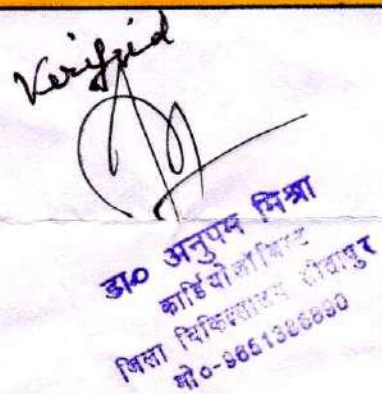 Verified
डा० अनुपम मिश्रा
कार्डियोलॉजिस्ट
जिला चिकित्सालय सीतापुर
मो०-9651386890